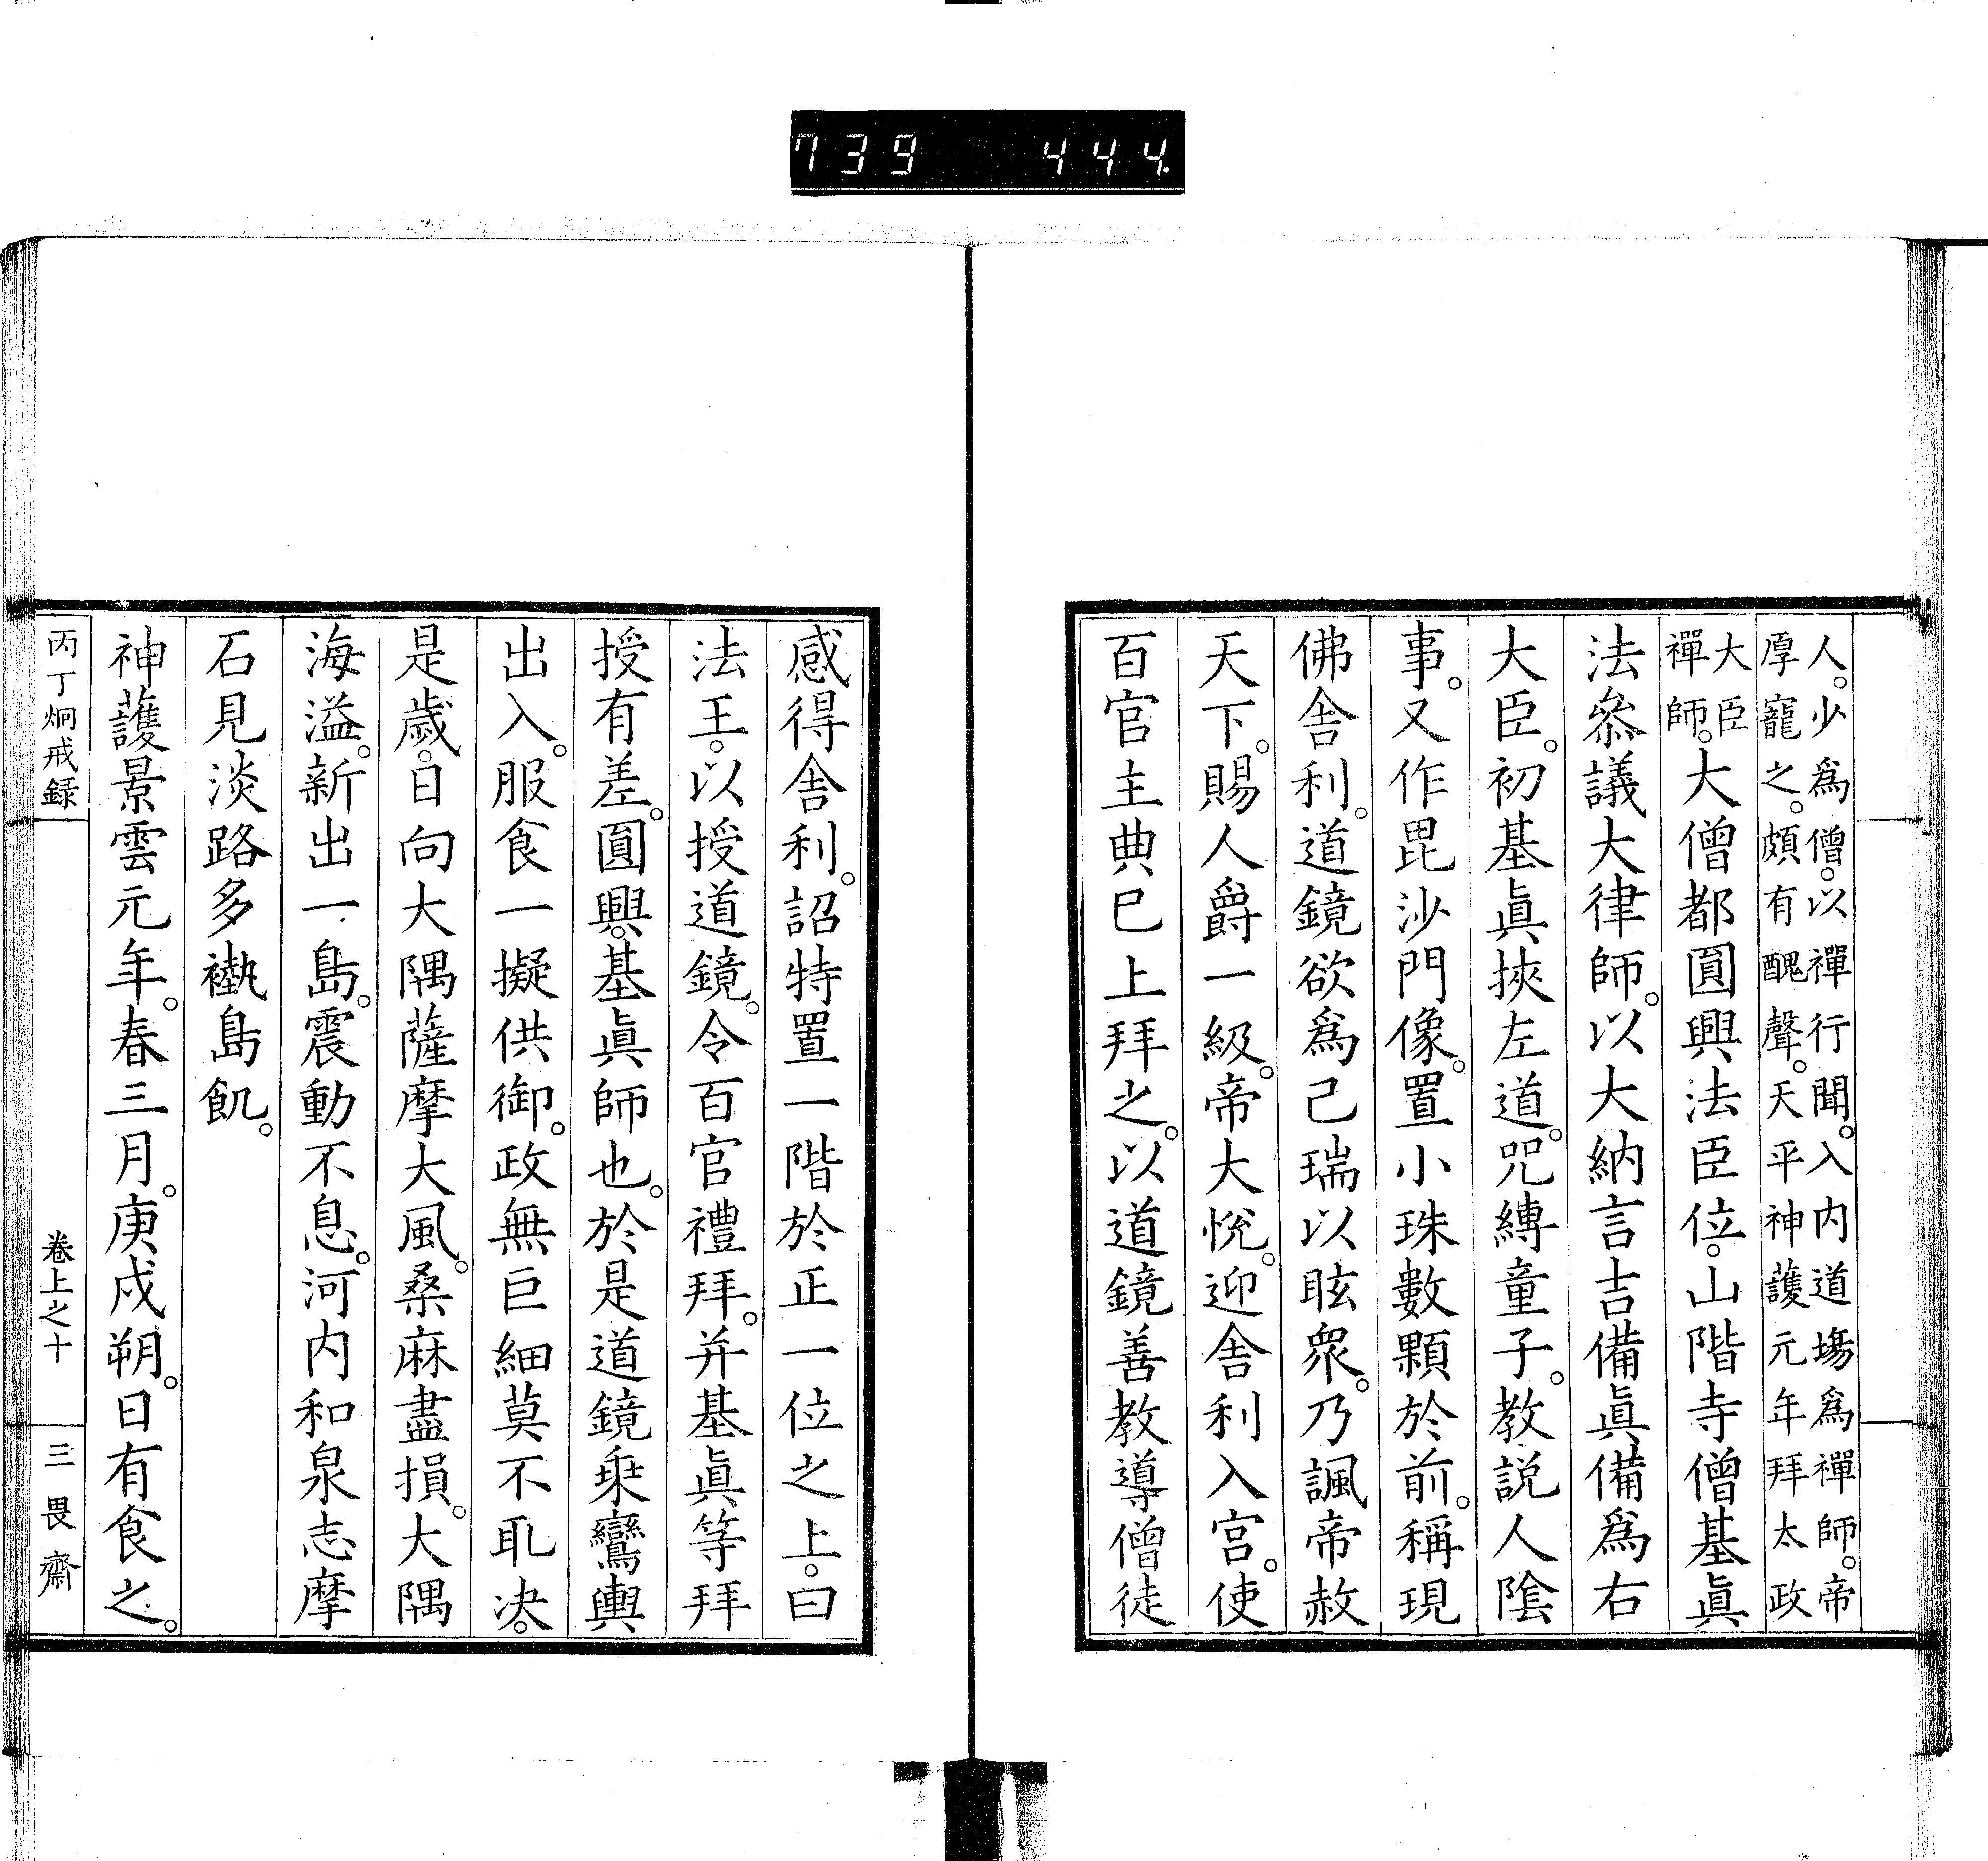 739 444
人。少爲僧。以禪行聞。入内道場爲禪師。帝
厚寵之。頗有醜聲。天平神護元年拜太政
大臣
禪師。
大僧都圓興法臣位。山階寺僧基眞
法參議大律師。以大納言吉備眞備爲右
大臣。初基眞挾左道。咒縛童子。教説人陰
事。又作毘沙門像。置小珠數顆於前。稱現
佛舎利。道鏡欲爲己瑞以眩衆。乃諷帝赦
天下。賜人爵一級。帝大悅。迎舎利入宮。使
百官主典已上拜之。以道鏡善教導僧徒
感得舎利。詔特置一階於正一位之上。曰
法王。以授道鏡。令百官禮拜。并基眞等拜
授有差。圓興。基眞師也。於是道鏡乘鸞輿
出入。服食一擬供御。政無巨細莫不取决。
是歲。日向大隅薩摩大風。桑麻盡損。大隅
海溢。新出一島。震動不息。河内和泉志摩
石見淡路多褹島飢。
神護景雲元年。春三月。庚戌朔。日有食之。
丙丁炯戒録 卷上之十 三畏齋